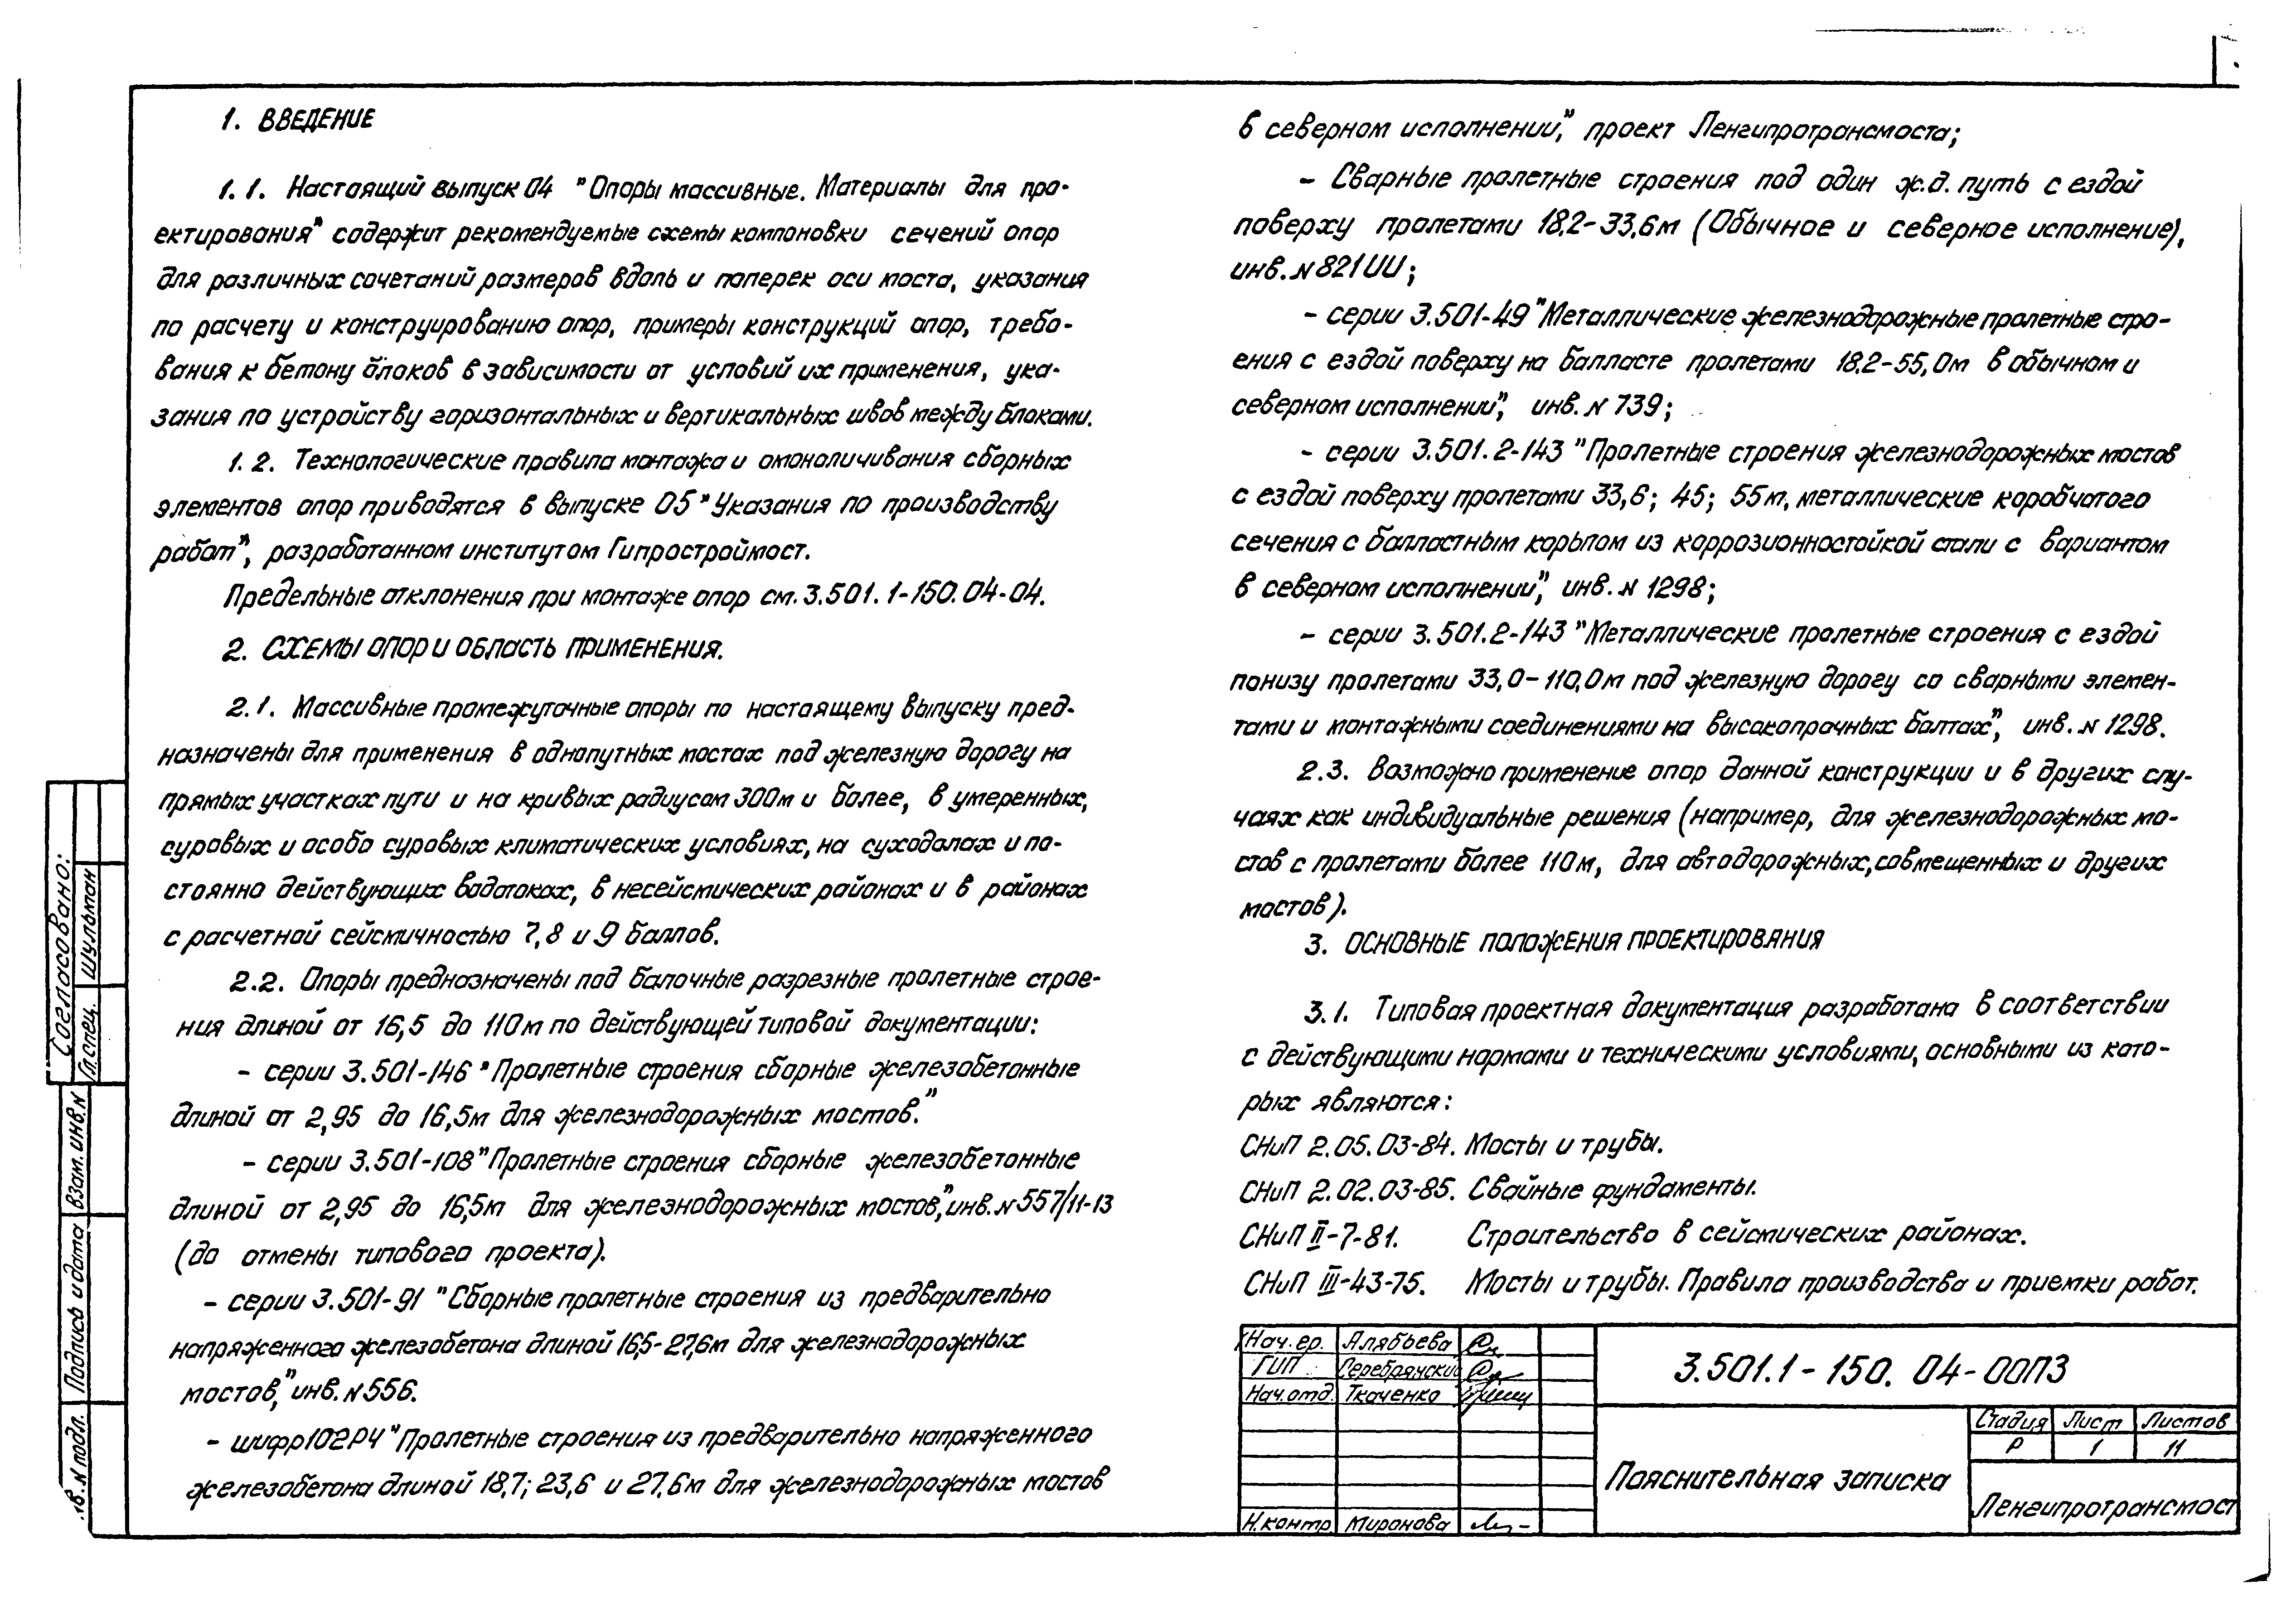 1. ВВЕДЕНИЕ
1.1. Настоящий выпуск 04 "Опоры массивные. Материалы для про-
ектирования" содержит рекомендуемые схемы компоновки сечений опор
для различных сочетаний размеров вдоль и поперек оси моста, указания
по расчету и конструированию опор, примеры конструкций опор, требо-
вания к бетону блоков в зависимости от условий их применения, ука-
зания по устройству горизонтальных и вертикальных швов между блоками.
1.2. Технологические правила монтажа и омоноличивания сборных
элементов опор приводятся в выпуске 05 "Указания по производству
работ", разработанном институтом Гипростроймост.
Предельные отклонения при монтаже опор см. 3.501.1-150.04-04.
2. СХЕМЫ ОПОР И ОБЛАСТЬ ПРИМЕНЕНИЯ.
2.1. Массивные промежуточные опоры по настоящему выпуску пред-
назначены для применения в однопутных мостах под железную дорогу на
прямых участках пути и на кривых радиусом 300м и более, в умеренных,
суровых и особо суровых климатических условиях, на суходолах и по-
стоянно действующих водотоках, в несейсмических районах и в районах
с расчетной сейсмичностью 7, 8 и 9 баллов.
2.2. Опоры предназначены под балочные разрезные пролетные строе-
ния длиной от 16,5 до 110м по действующей типовой документации:
- серии 3.501-146 "Пролетные строения сборные железобетонные
длиной от 2,95 до 16,5м для железнодорожных мостов."
- серии 3.501-108 "Пролетные строения сборные железобетонные
длиной от 2,95 до 16,5м для железнодорожных мостов", инв. N 557/11-13
(до отмены типового проекта).
- серии 3.501-91 "Сборные пролетные строения из предварительно
напряженного железобетона длиной 16,5-27,6м для железнодорожных
мостов," инв. N 556.
- шифр 102РЧ "Пролетные строения из предварительно напряженного
железобетона длиной 18,7; 23,6 и 27,6м для железнодорожных мостов
в северном исполнении", проект Ленгипротрансмоста;
- Сварные пролетные строения под один ж.д. путь с ездой
поверху пролетами 18,2-33,6м (Обычное и северное исполнение),
инв. N 821 ИИ;
- серии 3.501-49 "Металлические железнодорожные пролетные стро-
ения с ездой поверху на балласте пролетами 18,2-55,0м в обычном и
северном исполнении", инв. N 739;
- серии 3.501.2-143 "Пролетные строения железнодорожных мостов
с ездой поверху пролетами 33,6; 45; 55м, металлические коробчатого
сечения с балластным корытом из коррозионностойкой стали с вариантом
в северном исполнении", инв. N 1298;
- серии 3.501.2-143 "Металлические пролетные строения с ездой
понизу пролетами 33,0-110,0м под железную дорогу со сварными элемен-
тами и монтажными соединениями на высокопрочных болтах", инв. N 1298.
2.3. Возможно применение опор данной конструкции и в других слу-
чаях как индивидуальные решения (например, для железнодорожных мо-
стов с пролетами более 110м, для автодорожных, совмещенных и других
мостов).
3. ОСНОВНЫЕ ПОЛОЖЕНИЯ ПРОЕКТИРОВАНИЯ
3.1. Типовая проектная документация разработана в соответствии
с действующими нормами и техническими условиями, основными из кото-
рых являются:
СНиП 2.05.03-84. Мосты и трубы.
СНиП 2.02.03-85. Свайные фундаменты.
СНиП II-7-81. Строительство в сейсмических районах.
СНиП III-43-75. Мосты и трубы. Правила производства и приемки работ.
Нач. гр. Алябьева
ГИП Серебрянский
Нач. отд. Ткаченко
Н. контр Миронова
3.501.1-150. 04-00ПЗ
Пояснительная записка
Стадия Лист Листов
Р 1 11
Ленгипротрансмост
Согласовано:
Гл. спец. Шульман
Взам. инв. N
Подпись и дата
в. N подл.